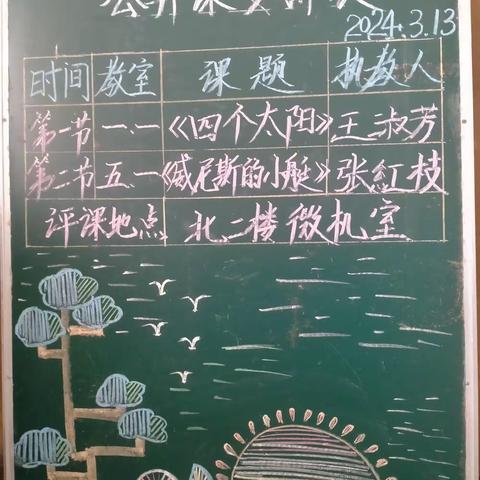 2024.3.13
时间 教室 课题 执教人
第一节 一.一 《四个太阳》 王淑芳
第二节 五.一 《威尼斯的小艇》 张红枝
评课地点 北二楼微机室